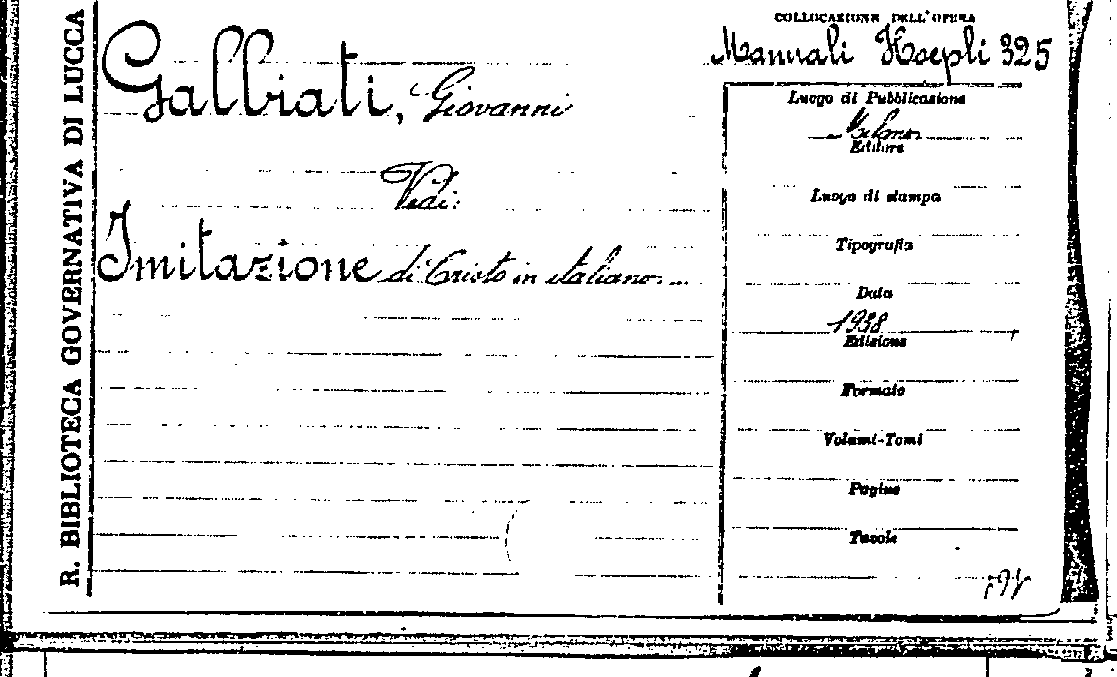 R. BIBLIOTECA GOVERNATIVA DI LUCCA
Galbiati, Giovanni
Vedi:
Imitazione di Cristo in italiano
COLLOCAZIONE DELL'OPERA
Manuali Hoepli 325
Luogo di Pubblicazione
Milano
Editore
Luogo di stampa
Tipografia
Data
1938
Edizione
Formato
Volumi-Tomi
Pagine
Tavole